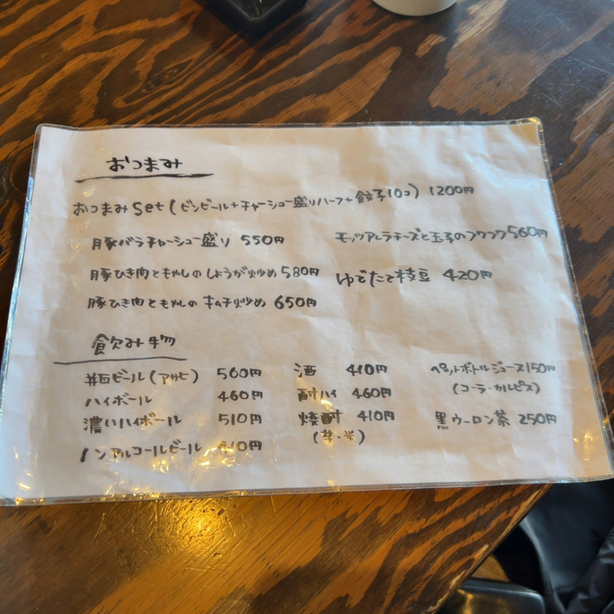 おつまみ
おつまみset(ビンビール+チャーシュー盛りハーフ+餃子10コ) 1200円
豚バラチャーシュー盛り 550円
モッツアレラチーズと玉子のフワフワ 560円
豚ひき肉ともやしのしょうが炒め 580円
ゆでたて枝豆 420円
豚ひき肉ともやしのキムチ炒め 650円
飲み物
瓶ビール(アサヒ) 560円
酒 410円
ペットボトルジュース 150円
(コーラ・カルピス)
ハイボール 460円
酎ハイ 460円
濃いハイボール 510円
焼酎 410円
(芋・米)
黒ウーロン茶 250円
ノンアルコールビール 410円